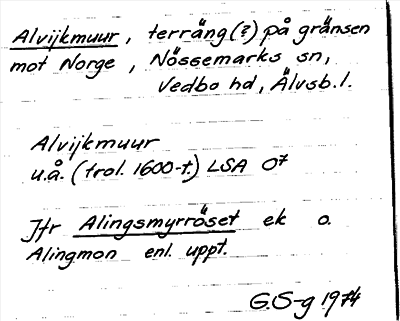 Alvijkmuur, terräng (?) på gränsen
mot Norge, Nössemarks sn,
Vedbo hd, Älvsb. l.
Alvijkmuur
u.å. (trol. 1600-t.) LSA O7
Jfr Alingsmyrröset ek o.
Alingmon enl. uppt.
G.S-g 1974